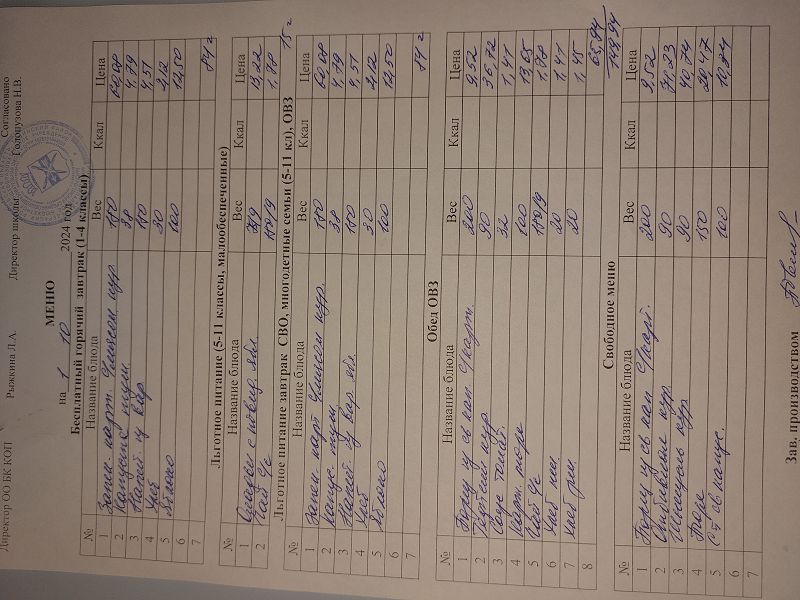 Директор ОО БК КОП Рыжкина Л.А. Директор школы Согласовано
Голопузова Н.В.
МЕНЮ
на 1 10 2024 год
Бесплатный горячий завтрак (1-4 классы)
№ Название блюда Вес Ккал Цена
1 Запек. карт. 180 60,08
2 Капуста туш. 38 4,79
3 Напит. 180 4,51
4 Хлеб 30 2,12
5 Яблоко 100 12,50
6 84 г
7
Льготное питание (5-11 классы, малообеспеченные)
№ Название блюда Вес Ккал Цена
1 Оладьи с повид. ябл 13,22
2 Чай 180/9 1,78
15 г
Льготное питание завтрак СВО, многодетные семьи (5-11 кл), ОВЗ
№ Название блюда Вес Ккал Цена
1 Запек карт кур. 180 60,08
2 Капус. туш 38 4,79
3 Напит. ябл 180 4,51
4 Хлеб 30 2,12
5 Яблоко 100 12,50
6 84 г
7
Обед ОВЗ
№ Название блюда Вес Ккал Цена
1 Борщ из св кап с/карт. 200 9,52
2 кур. 90 36,72
3 Соус томат. 32 1,41
4 пюре 100 13,65
5 Чай 180/9 1,78
6 Хлеб пш 20 1,41
7 Хлеб рж. 20 1,45
8 65,94
149,94
Свободное меню
№ Название блюда Вес Ккал Цена
1 Борщ из св кап с/карт. 200 9,52
2 кур. 90
3 Шницель кур 90 40,74
4 Пюре 150 20,47
5 Ст св капус. 100
6
7
Зав. производством